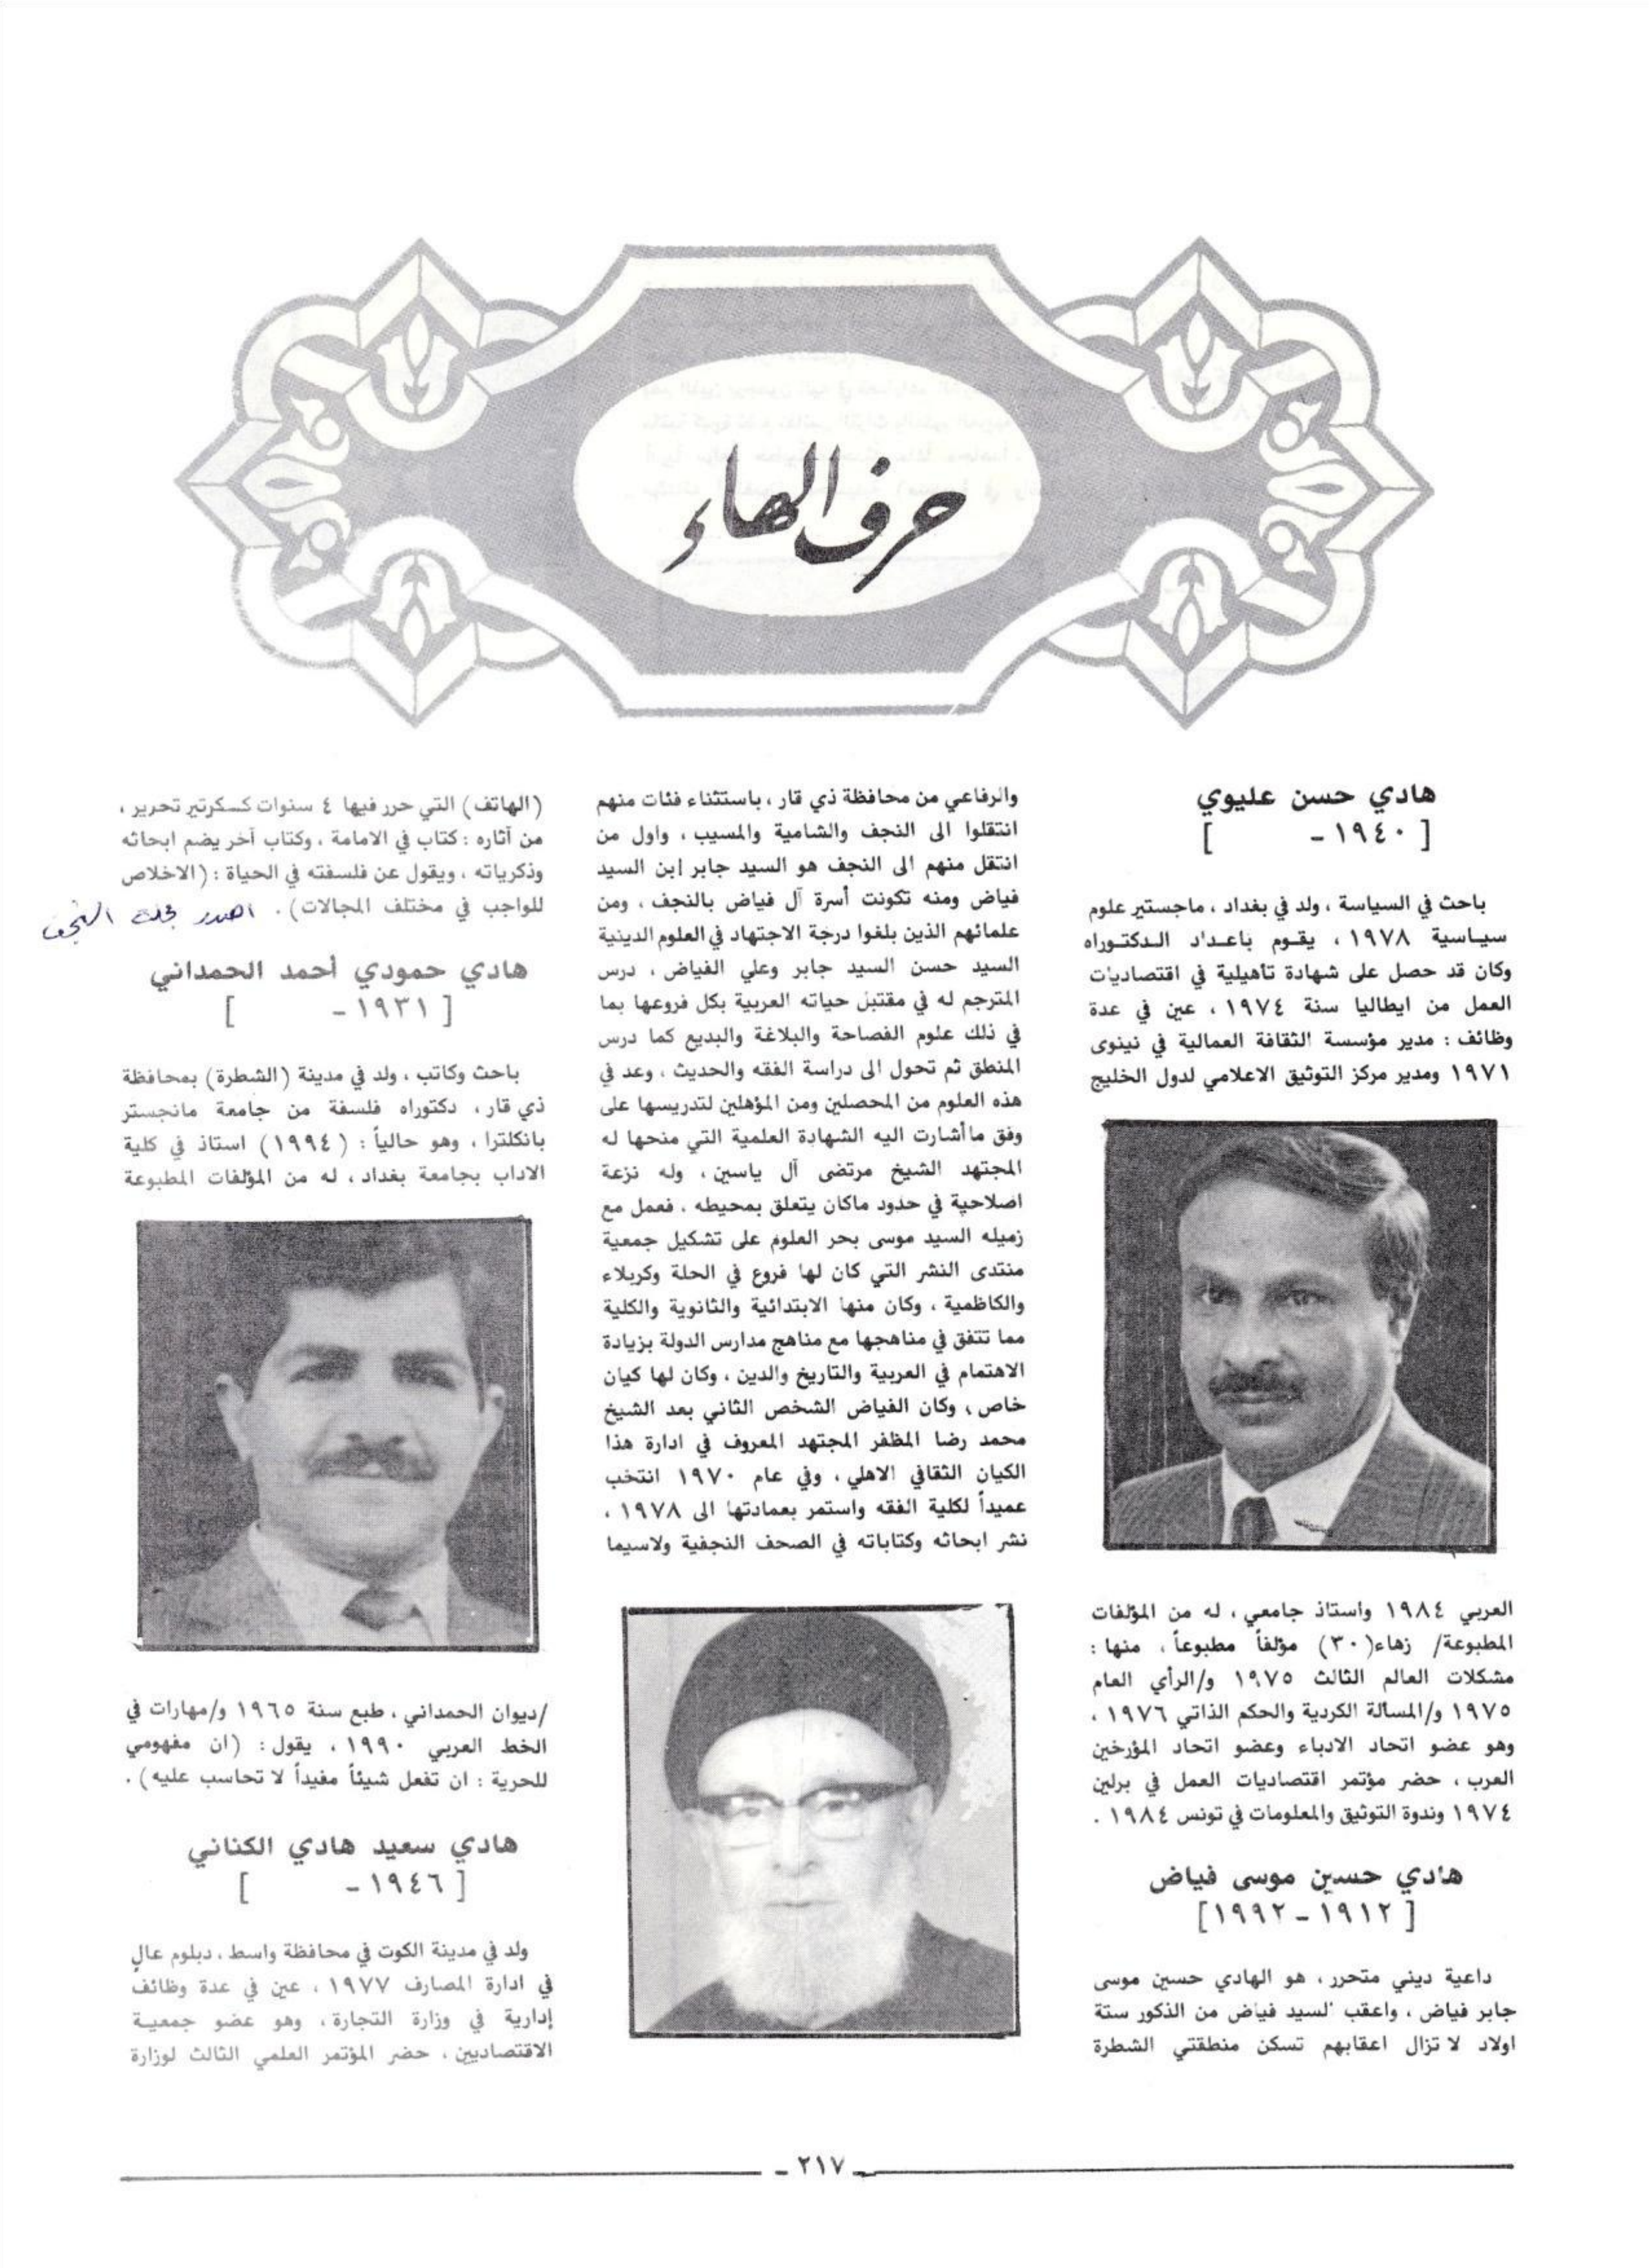 حرف الهاء
هادي حسن عليوي
[ ١٩٤٠ - ]
باحث في السياسة ، ولد في بغداد ، ماجستير علوم
سياسية ١٩٧٨ ، يقوم باعداد الدكتوراه
وكان قد حصل على شهادة تأهيلية في اقتصاديات
العمل من ايطاليا سنة ١٩٧٤ ، عين في عدة
وظائف : مدير مؤسسة الثقافة العمالية في نينوى
١٩٧١ ومدير مركز التوثيق الاعلامي لدول الخليج
العربي ١٩٨٤ واستاذ جامعي ، له من المؤلفات
المطبوعة/ زهاء(٣٠) مؤلفاً مطبوعاً ، منها :
مشكلات العالم الثالث ١٩٧٥ و/الرأي العام
١٩٧٥ و/المسألة الكردية والحكم الذاتي ١٩٧٦ ،
وهو عضو اتحاد الادباء وعضو اتحاد المؤرخين
العرب ، حضر مؤتمر اقتصاديات العمل في برلين
١٩٧٤ وندوة التوثيق والمعلومات في تونس ١٩٨٤ .
هادي حسين موسى فياض
[ ١٩١٢ - ١٩٩٢ ]
داعية ديني متحرر ، هو الهادي حسين موسى
جابر فياض ، واعقب السيد فياض من الذكور ستة
اولاد لا تزال اعقابهم تسكن منطقتي الشطرة
والرفاعي من محافظة ذي قار ، باستثناء فئات منهم
انتقلوا الى النجف والشامية والمسيب ، واول من
انتقل منهم الى النجف هو السيد جابر ابن السيد
فياض ومنه تكونت أسرة آل فياض بالنجف ، ومن
علمائهم الذين بلغوا درجة الاجتهاد في العلوم الدينية
السيد حسن السيد جابر وعلي الفياض ، درس
المترجم له في مقتبل حياته العربية بكل فروعها بما
في ذلك علوم الفصاحة والبلاغة والبديع كما درس
المنطق ثم تحول الى دراسة الفقه والحديث ، وعد في
هذه العلوم من المحصلين ومن المؤهلين لتدريسها على
وفق ماأشارت اليه الشهادة العلمية التي منحها له
المجتهد الشيخ مرتضى آل ياسين ، وله نزعة
اصلاحية في حدود ماكان يتعلق بمحيطه ، فعمل مع
زميله السيد موسى بحر العلوم على تشكيل جمعية
منتدى النشر التي كان لها فروع في الحلة وكربلاء
والكاظمية ، وكان منها الابتدائية والثانوية والكلية
مما تتفق في مناهجها مع مناهج مدارس الدولة بزيادة
الاهتمام في العربية والتاريخ والدين ، وكان لها كيان
خاص ، وكان الفياض الشخص الثاني بعد الشيخ
محمد رضا المظفر المجتهد المعروف في ادارة هذا
الكيان الثقافي الاهلي ، وفي عام ١٩٧٠ انتخب
عميداً لكلية الفقه واستمر بعمادتها الى ١٩٧٨ ،
نشر ابحاثه وكتاباته في الصحف النجفية ولاسيما
(الهاتف) التي حرر فيها ٤ سنوات كسكرتير تحرير ،
من آثاره : كتاب في الامامة ، وكتاب آخر يضم ابحاثه
وذكرياته ، ويقول عن فلسفته في الحياة : (الاخلاص
للواجب في مختلف المجالات) . اصدر مجلة النجف
هادي حمودي أحمد الحمداني
[ ١٩٣١ - ]
باحث وكاتب ، ولد في مدينة (الشطرة) بمحافظة
ذي قار ، دكتوراه فلسفة من جامعة مانجستر
بانكلترا ، وهو حالياً : (١٩٩٤) استاذ في كلية
الاداب بجامعة بغداد ، له من المؤلفات المطبوعة
/ديوان الحمداني ، طبع سنة ١٩٦٥ و/مهارات في
الخط العربي ١٩٩٠ ، يقول : (ان مفهومي
للحرية : ان تفعل شيئاً مفيداً لا تحاسب عليه) .
هادي سعيد هادي الكناني
[ ١٩٤٦ - ]
ولد في مدينة الكوت في محافظة واسط ، دبلوم عالٍ
في ادارة المصارف ١٩٧٧ ، عين في عدة وظائف
إدارية في وزارة التجارة ، وهو عضو جمعية
الاقتصاديين ، حضر المؤتمر العلمي الثالث لوزارة
- ٢١٧ -